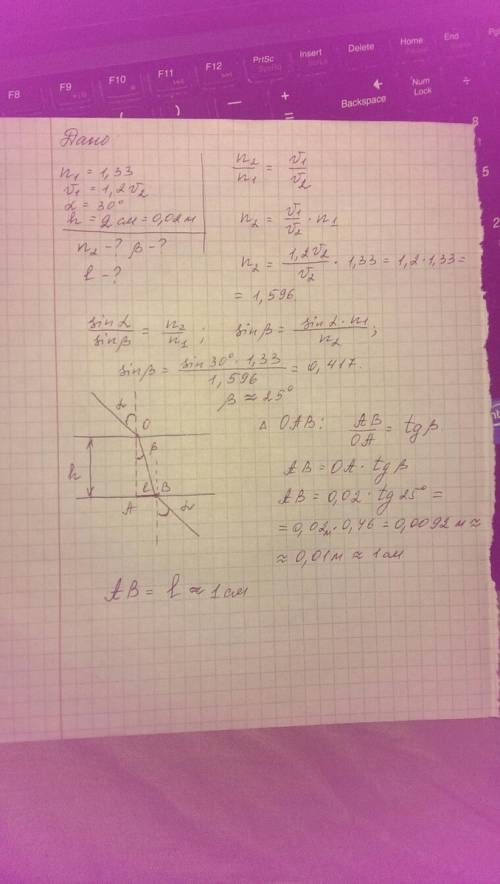 F8 F9 F10 F11 F12 PrtSc SysRq Insert Delete Home End
( ) — + = Backspace Num Lock ÷
8
5
2
Дано
n₁ = 1,33
v₁ = 1,2 v₂
α = 30°
h = 2 см = 0,02 м
n₂ - ? β - ?
l - ?
n₂/n₁ = v₁/v₂
n₂ = v₁/v₂ · n₁
n₂ = 1,2v₂/v₂ · 1,33 = 1,2·1,33 =
= 1,596.
sin α/sin β = n₂/n₁ ; sin β = sin α · n₁/n₂ ;
sin β = sin 30° · 1,33/1,596 = 0,417.
β ≈ 25°
α O β h A l B α
Δ OAB: AB/OA = tg β
AB = OA · tg β
AB = 0,02 · tg 25° =
= 0,02м · 0,46 = 0,0092 м ≈
≈ 0,01м ≈ 1 см
AB = l ≈ 1 см